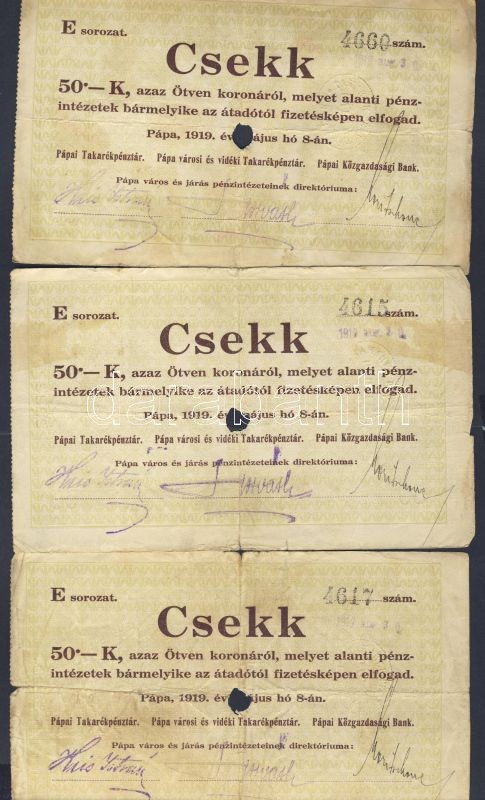 E sorozat. 4660 szám.
Csekk
50·— K, azaz Ötven koronáról, melyet alanti pénz-
intézetek bármelyike az átadótól fizetésképen elfogad.
Pápa, 1919. év május hó 8-án.
Pápai Takarékpénztár. Pápa városi és vidéki Takarékpénztár. Pápai Közgazdasági Bank.
Pápa város és járás pénzintézeteinek direktóriuma:
E sorozat. 4615 szám.
Csekk
50·— K, azaz Ötven koronáról, melyet alanti pénz-
intézetek bármelyike az átadótól fizetésképen elfogad.
Pápa, 1919. év május hó 8-án.
Pápai Takarékpénztár. Pápa városi és vidéki Takarékpénztár. Pápai Közgazdasági Bank.
Pápa város és járás pénzintézeteinek direktóriuma:
E sorozat. 4617 szám.
Csekk
50·— K, azaz Ötven koronáról, melyet alanti pénz-
intézetek bármelyike az átadótól fizetésképen elfogad.
Pápa, 1919. év május hó 8-án.
Pápai Takarékpénztár. Pápa városi és vidéki Takarékpénztár. Pápai Közgazdasági Bank.
Pápa város és járás pénzintézeteinek direktóriuma: